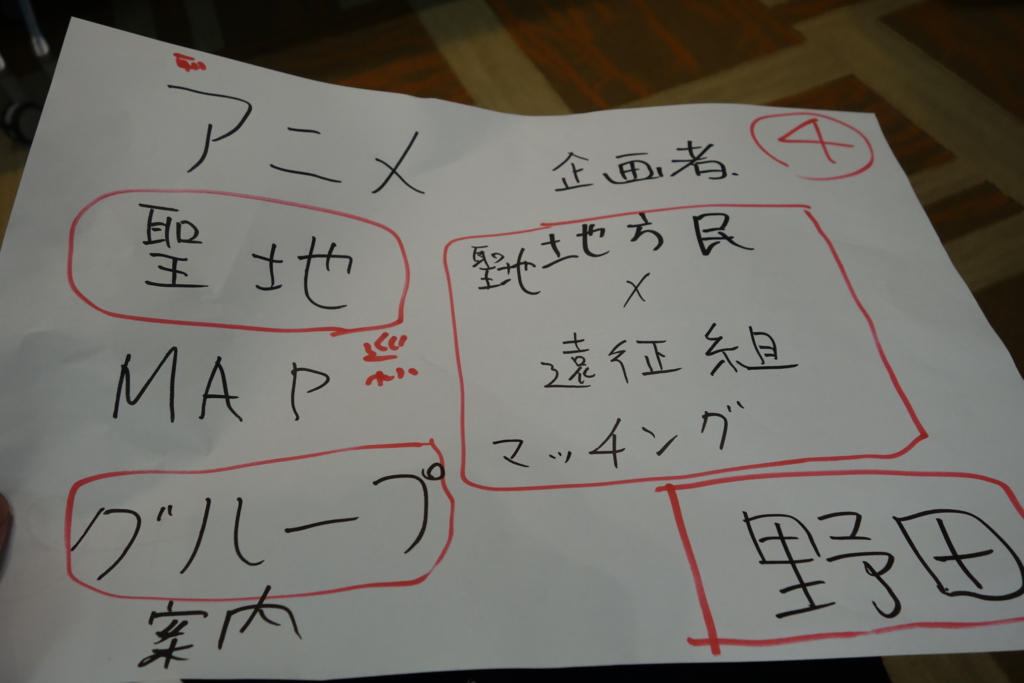 アニメ
聖地
MAP
グループ
案内
企画者
④
聖地地方民
×
遠征組
マッチング
野田